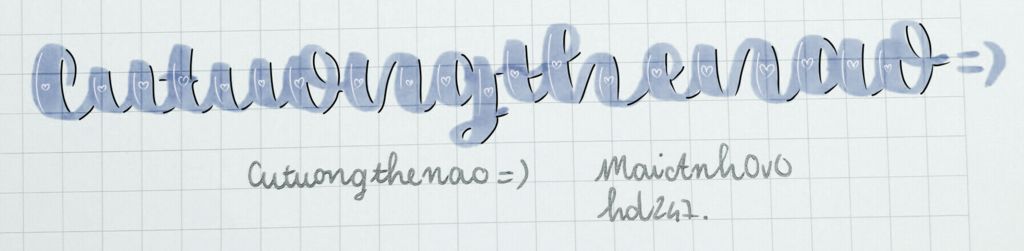 Cutuongthenao =)
Cutuongthenao =) MaiAnhOvO
hd247.